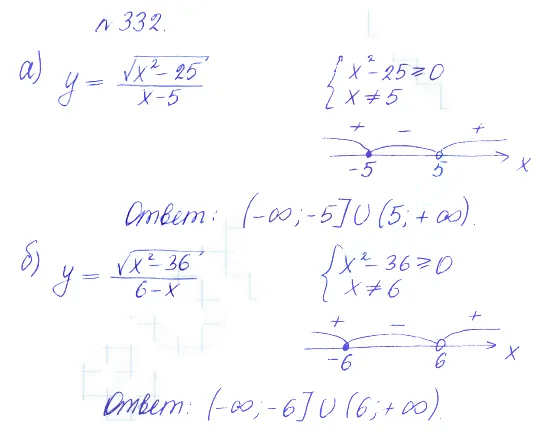 № 332.
а) y = √(x² − 25) / (x − 5)
{ x² − 25 ≥ 0
x ≠ 5
+ − +
−5 5 x
Ответ: (−∞; −5] ∪ (5; +∞).
б) y = √(x² − 36) / (6 − x)
{ x² − 36 ≥ 0
x ≠ 6
+ − +
−6 6 x
Ответ: (−∞; −6] ∪ (6; +∞).